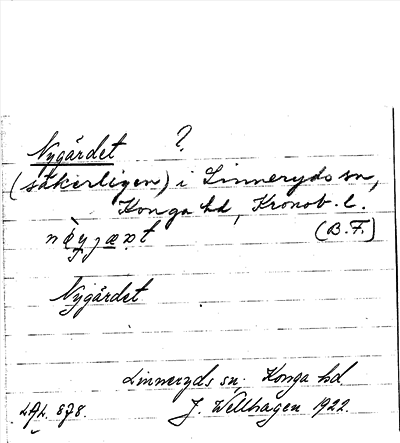 Nygärdet ?
(säkerligen) i Linneryds sn,
Konga hd, Kronob. l.
(B.F.)
Nygärdet
Linneryds sn. Konga hd
LAL 878. J. Wellhagen 1922.